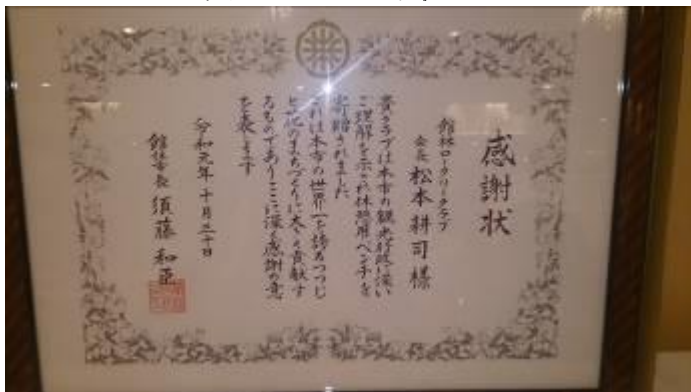 感謝状
館林ロータリークラブ
会長 松本耕司様
貴クラブは本市の観光行政に深い
ご理解を示され休憩用ベンチを
寄贈されました
これは本市の世界一を誇るつつじ
と花のまちづくりに大きく貢献す
るものでありここに深く感謝の意
を表します
令和元年十月三十日
館林市長 須藤和臣